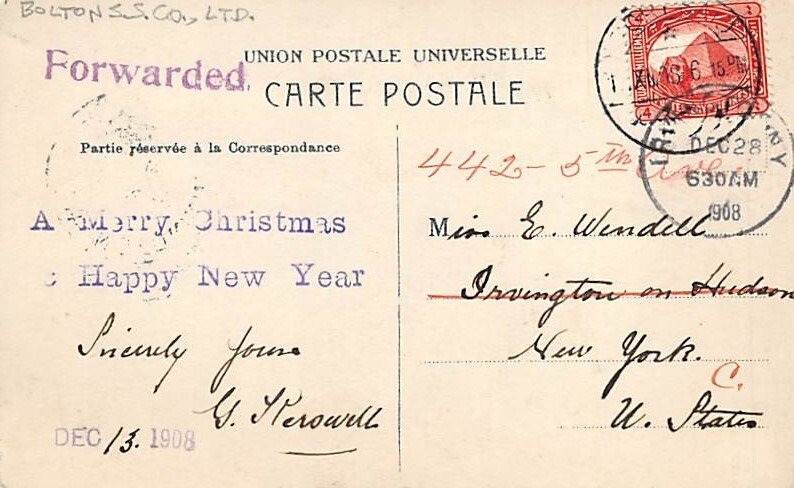 BOLTON S.S. CO., LTD.
Forwarded
UNION POSTALE UNIVERSELLE
CARTE POSTALE
Partie réservée à la Correspondance
A Merry Christmas
Happy New Year
Sincerely yours
G. Kerswell
DEC 13. 1908
DEC 28
630AM
1908
NY
442 - 5th Ave
Miss E. Wendell
Irvington on Hudson
New York.
C.
U. States